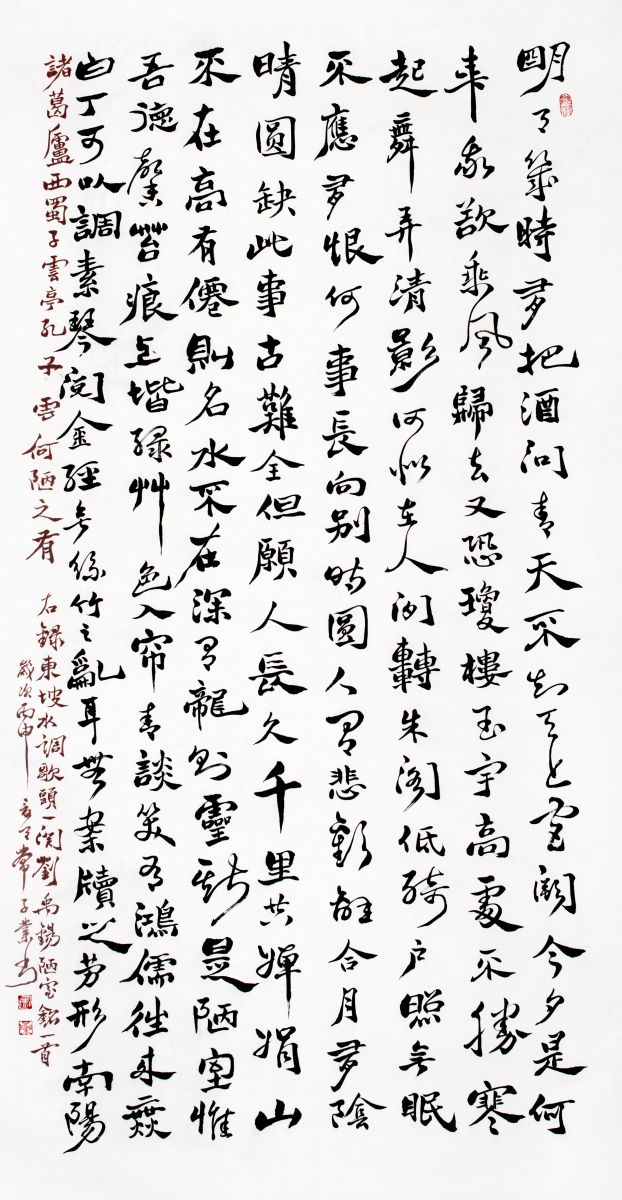 明月幾時有把酒問青天不知天上宮闕今夕是何
年我欲乘風歸去又恐瓊樓玉宇高處不勝寒
起舞弄清影何似在人間轉朱閣低綺戶照無眠
不應有恨何事長向別時圓人有悲歡離合月有陰
晴圓缺此事古難全但願人長久千里共嬋娟山
不在高有僊則名水不在深有龍則靈斯是陋室惟
吾德馨苔痕上堦綠艸色入帘青談笑有鴻儒往來無
白丁可以調素琴閱金經無絲竹之亂耳無案牘之勞形南陽
諸葛廬西蜀子雲亭孔子雲何陋之有 右錄東坡水調歌頭一闋劉禹錫陋室銘一首
歲次丙申 常子業書